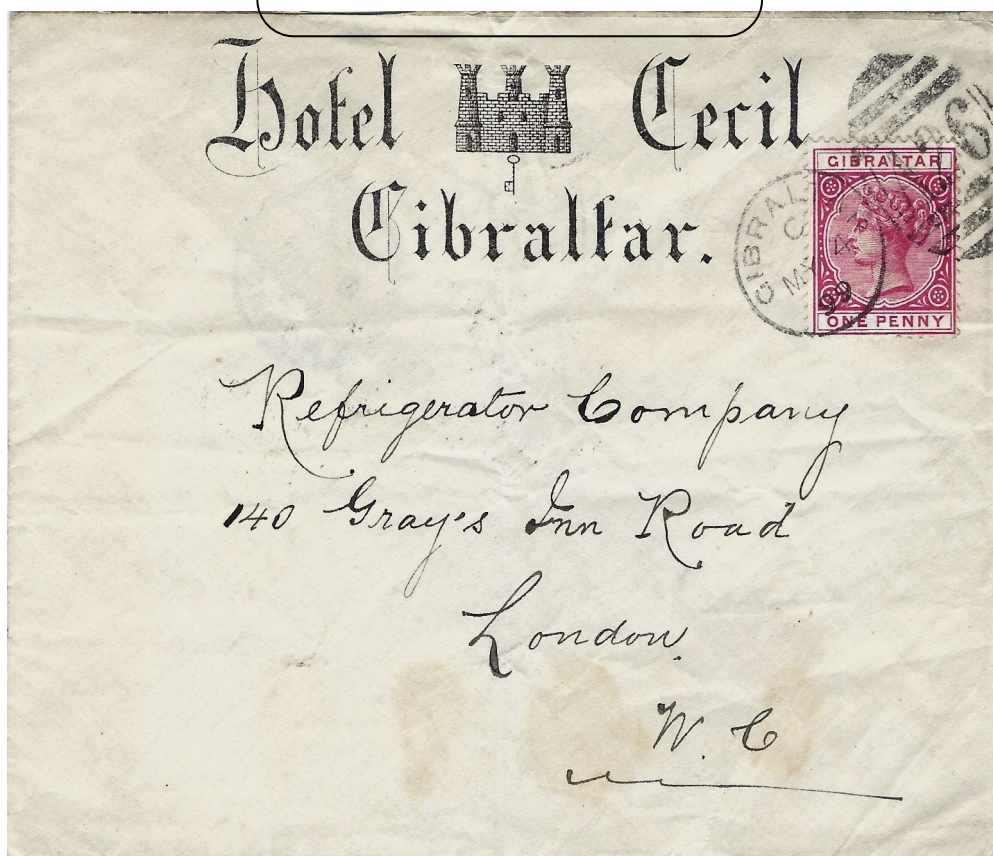 Hotel Cecil
Gibraltar.
GIBRALTAR
ONE PENNY
GIBRAL
C
MY
99
Refrigerator Company
140 Gray's Inn Road
London.
W. C